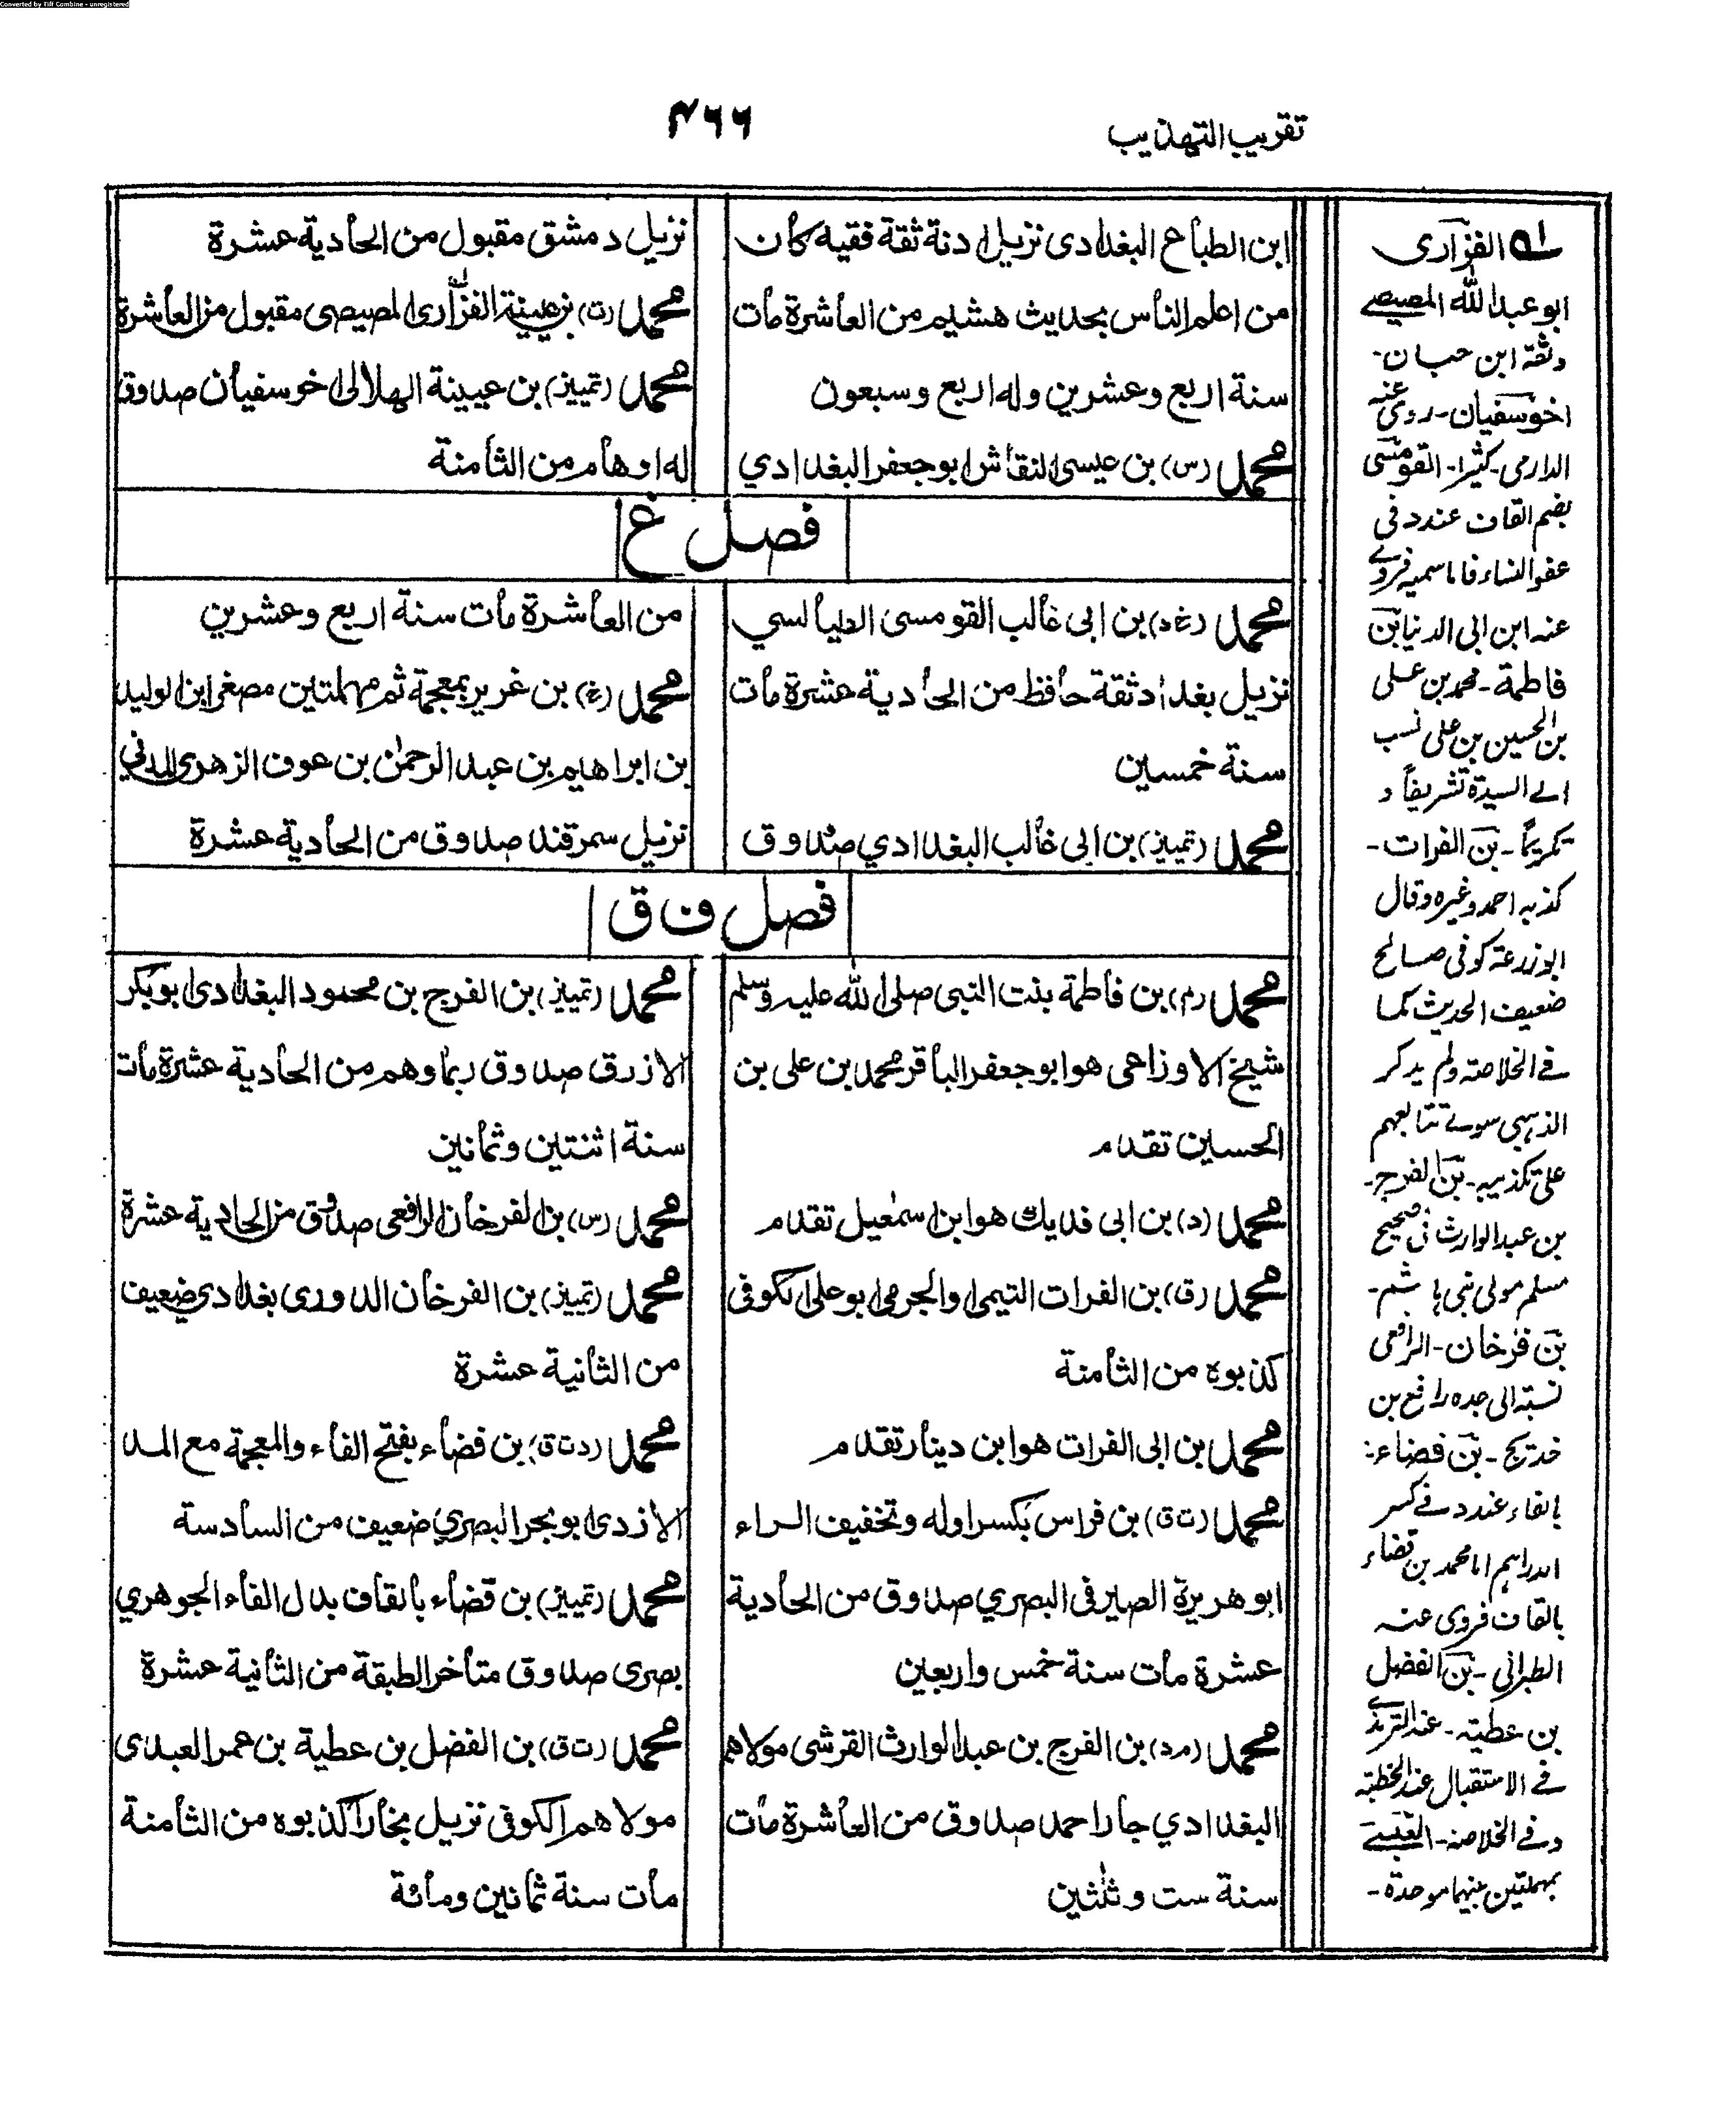 Converted by Tiff Combine - unregistered
تقريب التهذيب
۴۶۶
ابن الطباع البغدادى نزيل اذنة ثقة فقيه كان
من اعلم الناس بحديث هشيم من العاشرة مات
سنة اربع وعشرين وله اربع وسبعون
محمد (س) بن عيسى النقاش ابو جعفر البغدادي
نزيل دمشق مقبول من الحادية عشرة
محمد (ت) بن عيينة الفزارى المصيصى مقبول من العاشرة
محمد (تمييز) بن عيينة الهلالى اخو سفيان صدوق
له اوهام من الثامنة
فصل غ
محمد (غ د) بن ابى غالب القومسى الطيالسي
نزيل بغداد ثقة حافظ من الحادية عشرة مات
سنة خمسين
محمد (تمييز) بن ابى غالب البغدادي صدوق
من العاشرة مات سنة اربع وعشرين
محمد (خ) بن غرير بمعجمة ثم مهملتين مصغر ابن الوليد
بن ابراهيم بن عبد الرحمن بن عوف الزهرى المدني
نزيل سمرقند صدوق من الحادية عشرة
فصل ف ق
محمد (م) بن فاطمة بنت النبى صلى الله عليه وسلم
شيخ الاوزاعى هو ابو جعفر الباقر محمد بن على بن
الحسين تقدم
محمد (د) بن ابى فديك هو ابن سمعيل تقدم
محمد (ق) بن الفرات التيمى او الجرمى ابو على الكوفى
كذبوه من الثامنة
محمد بن ابى الفرات هو ابن دينار تقدم
محمد (ت ق) بن فراس بكسر اوله وتخفيف الراء
ابو هريرة الصيرفى البصري صدوق من الحادية
عشرة مات سنة خمس واربعين
محمد (م د) بن الفرج بن عبد الوارث القرشى مولاهم
البغدادي جار احمد صدوق من العاشرة مات
سنة ست وثلثين
محمد (تمييز) بن الفرج بن محمود البغدادى ابو بكر
الازرق صدوق ربما وهم من الحادية عشرة مات
سنة اثنتين وثمانين
محمد (س) بن الفرخان الرافعى صدوق من الحادية عشرة
محمد (تمييز) بن الفرخان الدورى بغدادي ضعيف
من الثانية عشرة
محمد (د ت ق) بن فضاء بفتح الفاء والمعجمة مع المد
الازدى ابو بحر البصري ضعيف من السادسة
محمد (تمييز) بن قضاء بالقاف بدل الفاء الجوهري
بصرى صدوق متأخر الطبقة من الثانية عشرة
محمد (ت ق) بن الفضل بن عطية بن عمر العبدى
مولاهم الكوفى نزيل بخارا كذبوه من الثامنة
مات سنة ثمانين ومائة
الفزارى
ابو عبد الله المصيصے
وثقه ابن حبان-
اخو سفيان- روى عنه
الدارمى- كثيرا- القومسى
بضم القاف عند د فى
عفو النساء فاما سميه فروے
عنه ابن ابى الدنيا بن
فاطمة- محمد بن على
بن الحسين بن على نسب
الے السيدة تشريفاً و
تكريمًا- بن الفرات-
كذبه احمد وغيره وقال
ابو زرعة كوفى صالح
ضعيف الحديث كما
فے الخلاصة ولم يذكر
الذهبى سوے تتابعهم
على تكذيبه- بن الفرج-
بن عبد الوارث فى صحيح
مسلم مولى بنى هاشم-
بن فرخان- الرافعى
نسبة الى جده رافع بن
خديج- بن فضاء:
بالفاء عند د فے كسر
الدراهم اما محمد بن قضاء
بالقاف فروى عنه
الطبرانى- بن الفضل
بن عطية- عند الترمذے
فے الاستقبال عند الخطبة
وفے الخلاصة- العبسے
بمهملتين بينهما موحدة-